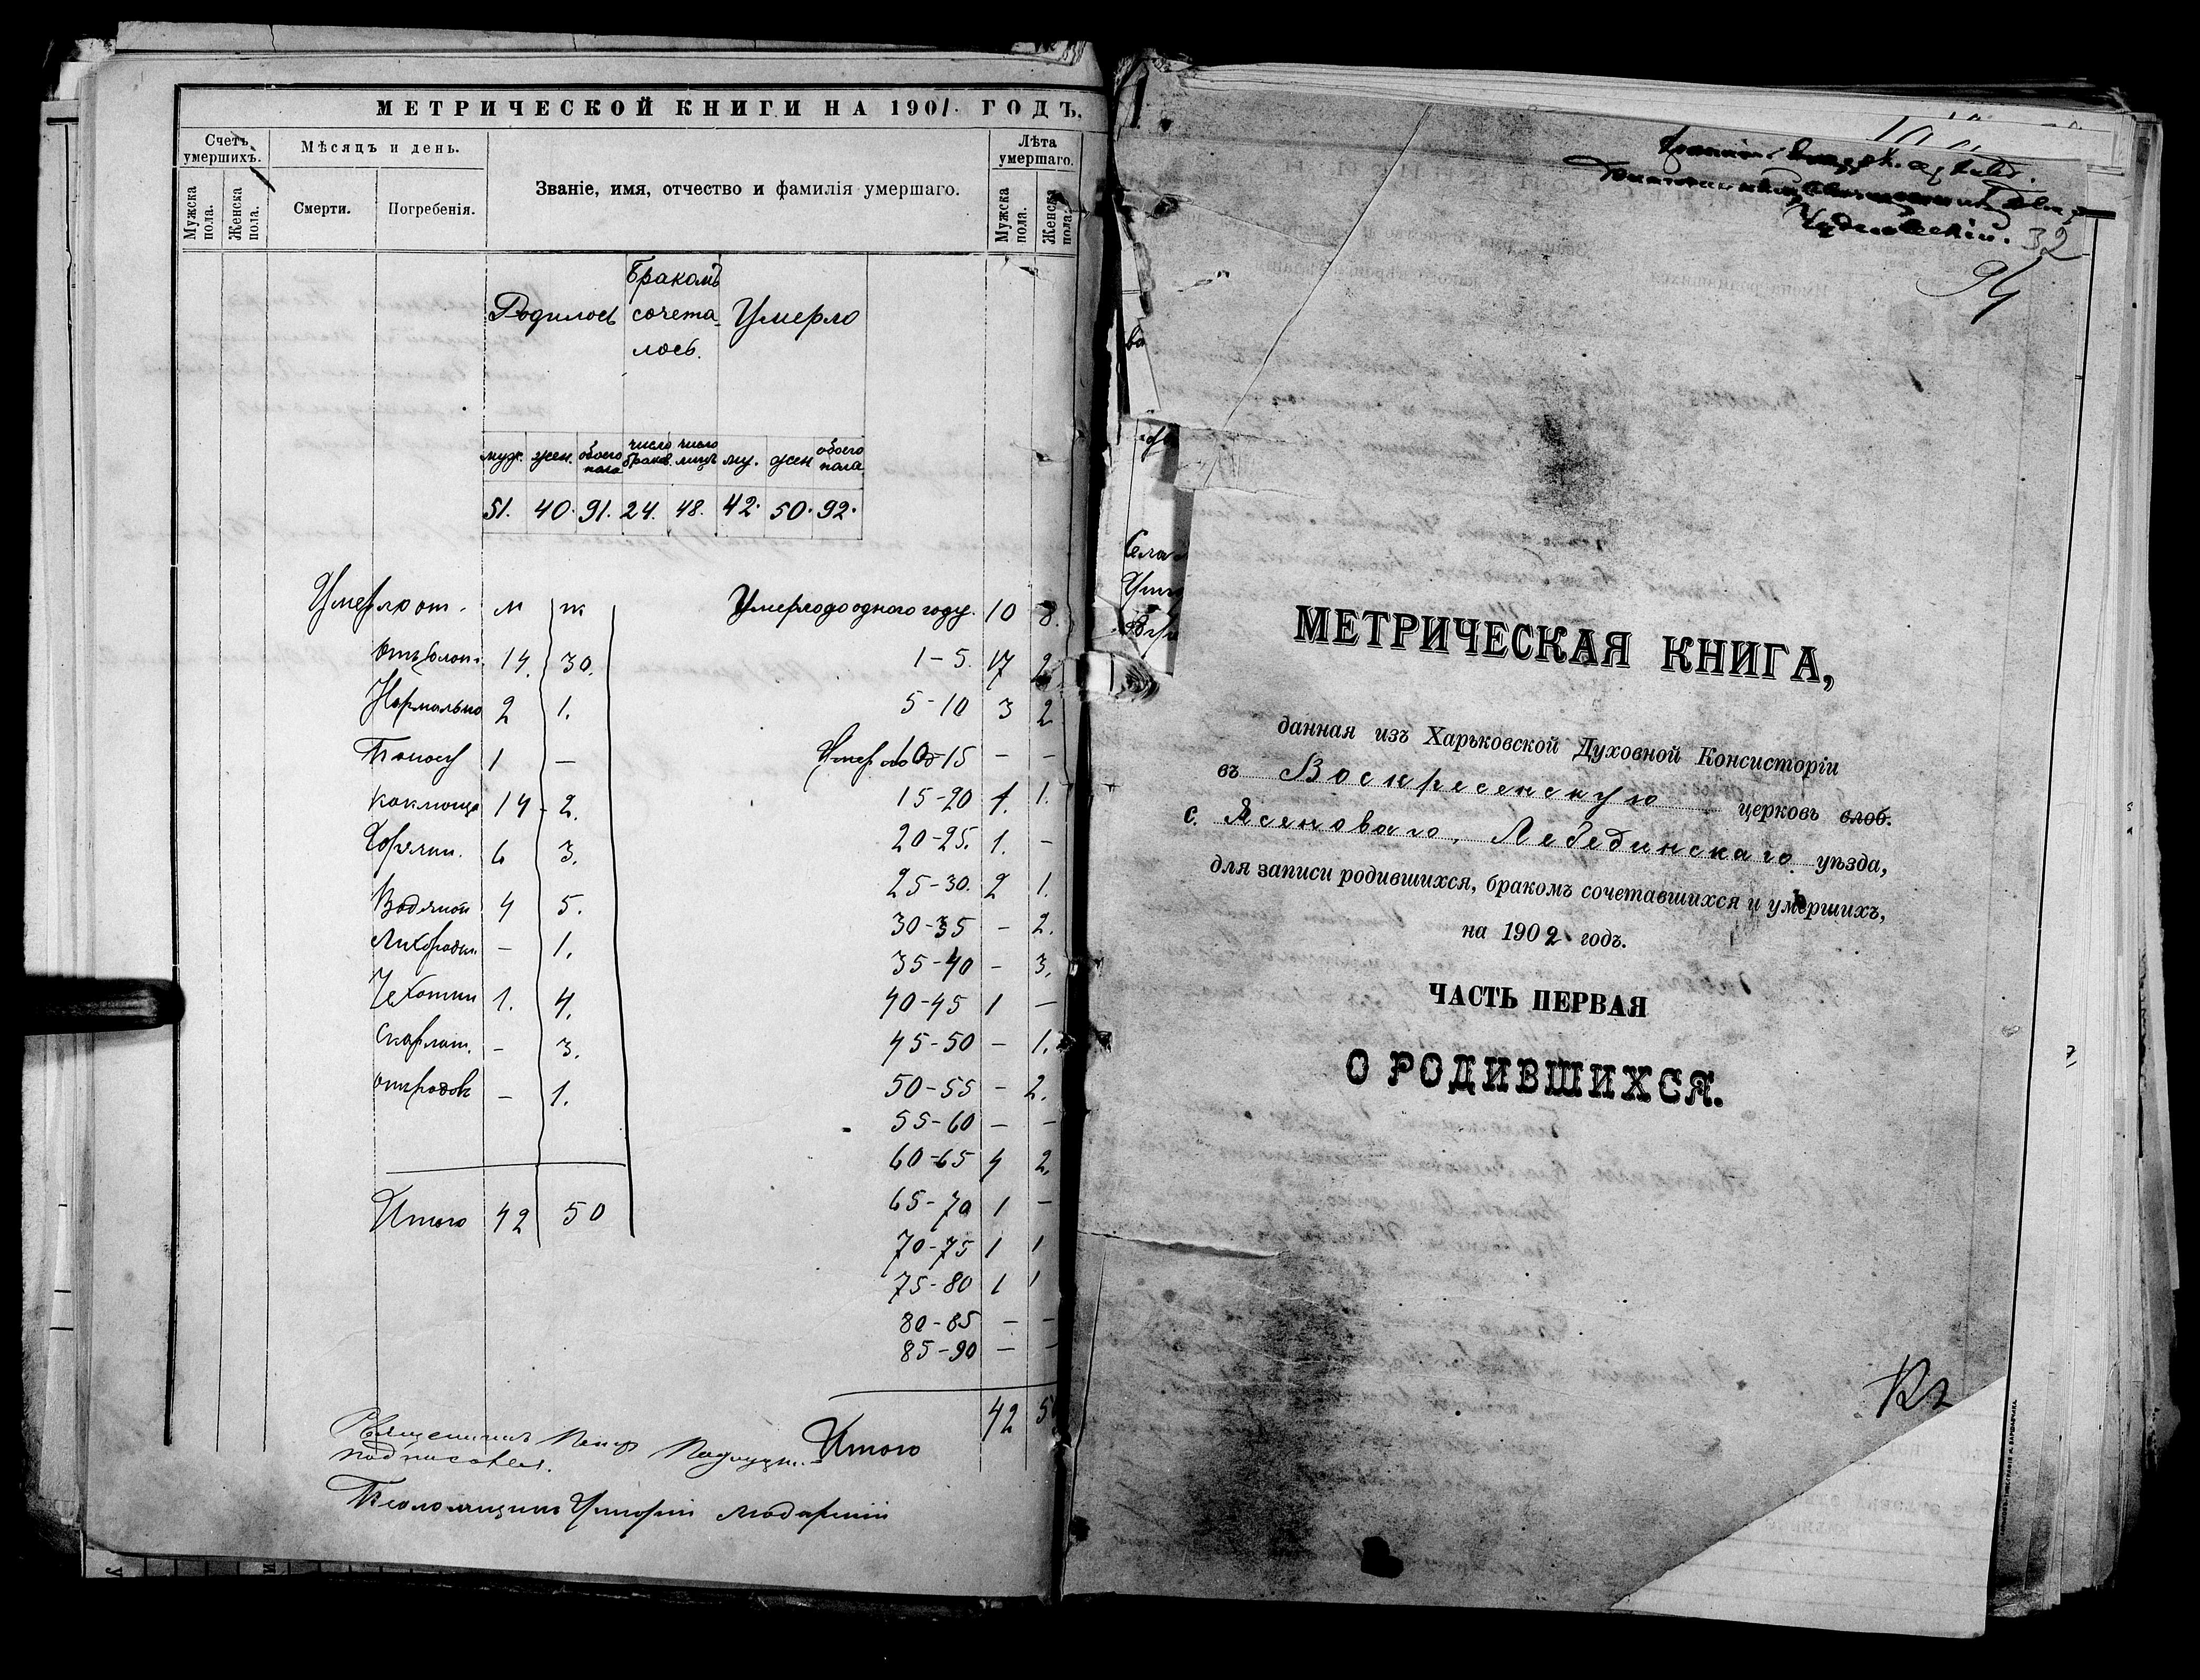 МЕТРИЧЕСКОЙ КНИГИ НА 1901 ГОДЪ.
Счетъ умершихъ.
Мѣсяцъ и день.
Званіе, имя, отчество и фамилія умершаго.
Лѣта умершаго.
Мужска пола.
Женска пола.
Смерти.
Погребенія.
Мужска пола.
Женска пола.
Родилось
Бракомъ сочета-лось.
Умерло
муж. жен. обоего пола число браков. число лицъ му. жен обоего пола
51. 40. 91. 24. 48. 42. 50. 92.
Умерло от. м ж
14. 30.
Нормально 2 1.
Поносу 1 —
коклюша 14 - 2.
Горячки. 6 3.
Водяной 4 5.
Лихорадки — 1.
Чехотки 1. 4.
Скарлат. - 3.
отъ родов — 1.
Итого 42 50
Умерло до одного году. 10 8.
1-5. 17
5-10 3 2
10-15 — —
15-20 1. 1.
20-25. 1. -
25-30. 2 1.
30-35 - 2.
35-40 - 3.
40-45 1 —
45-50 — 1.
50-55 - 2.
55-60 — —
60-65 4 2.
65-70 1 —
70-75 1 1
75-80 1 1
80-85 — —
85-90 — —
42 5
Итого
Священникъ Петръ
подписался.
Псаломщикъ
32
МЕТРИЧЕСКАЯ КНИГА,
данная изъ Харьковской Духовной Консисторіи
въ Воскресенскую церковь слоб.
с. Ясеноваго, Лебединскаго уѣзда,
для записи родившихся, бракомъ сочетавшихся и умершихъ,
на 1902 годъ.
ЧАСТЬ ПЕРВАЯ
О РОДИВШИХСЯ.